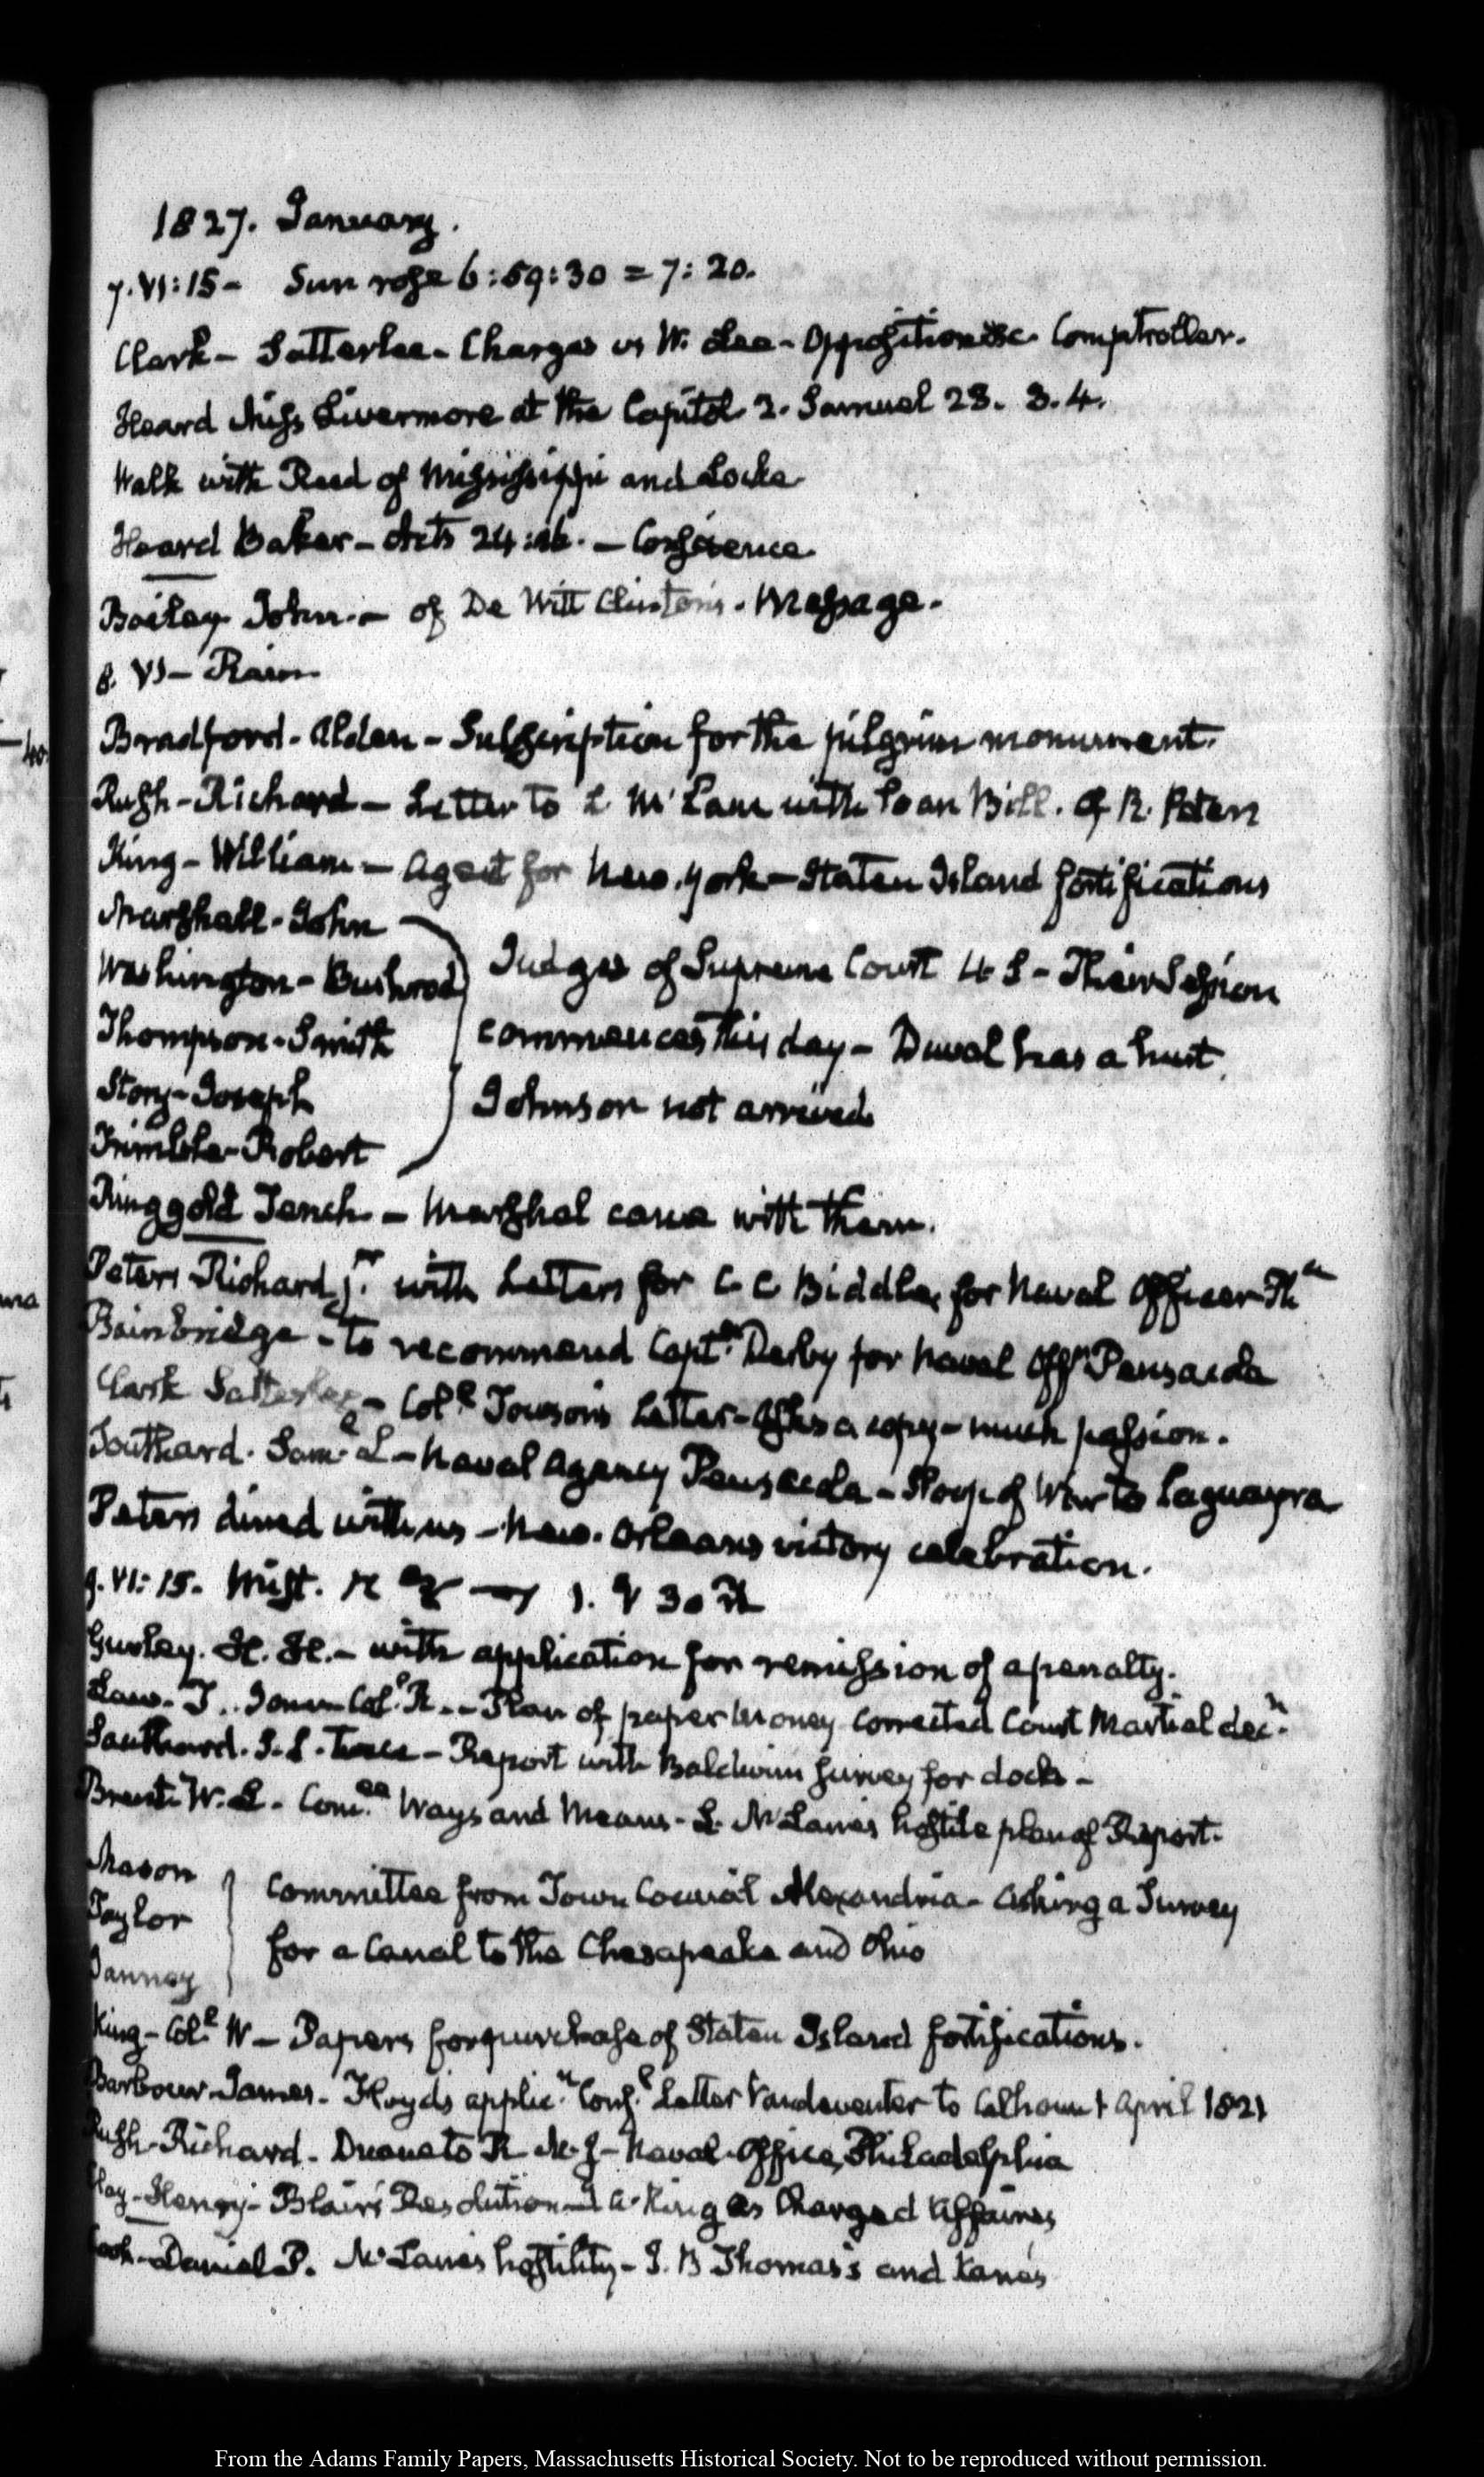 1827. January.
7. VI:15 - Sun rose 6:59:30 = 7:20.
Clark - Satterlee - Charges vs W. Lee - Opposition &c. Comptroller.
Heard Miss Livermore at the Capitol 2. Samuel 23. 3.4.
Walk with Reed of Mississippi and Locke
Heard Baker - Acts 24:16. - Conscience
Bailey John - of De Witt Clinton's Message.
8. VI - Rain
Bradford - Alden - Subscription for the pilgrim monument.
Rush - Richard - Letter to L McLane with Loan Bill. of R. Peters
King - William - Agent for New-York - Staten Island fortifications
Marshall - John
Washington - Bushrod
Thompson - Smith
Story - Joseph
Trimble - Robert
Judges of Supreme Court U S - Their Session
commences this day - Duval has a hurt
Johnson not arrived
Ringgold Tench - Marshal came with them.
Peters Richard jr. with Letters for C C Biddle, for Naval Officer Pha
Bainbridge - to recommend Captn. Derby for Naval Offr Pensacola
Clark Satterlee - Coll. Towson's Letter - Asks a copy - much passion.
Southard. Saml. L - Naval Agency Pensacola - Sloop of War to Laguayra
Peters dined with us - New-Orleans victory celebration.
9. VI:15. Mist.
Gurley. H. H. - with application for remission of a penalty.
Law. T. Jones Coll. R. - Plan of paper Money corrected Court Martial decn.
Southard. S. L. twice - Report with Baldwin survey for docks -
Brent. W. L. Comee. Ways and Means - L. McLane's hostile plan of Report.
Mason
Taylor
Janney
Committee from Town Council Alexandria - asking a Survey
for a Canal to the Chesapeake and Ohio
King - Coll. W - Papers for purchase of Staten Island fortifications.
Barbour James - Floyd's applicn. Letter Vandeventer to Calhoun April 1821
Rush Richard. Duane to R - Naval Office, Philadelphia
Clay - Henry - Blair's Resolution - A. King as Charge d'Affaires
Cook - Daniel P. McLane's hostility - J. B Thomas's and Kane's